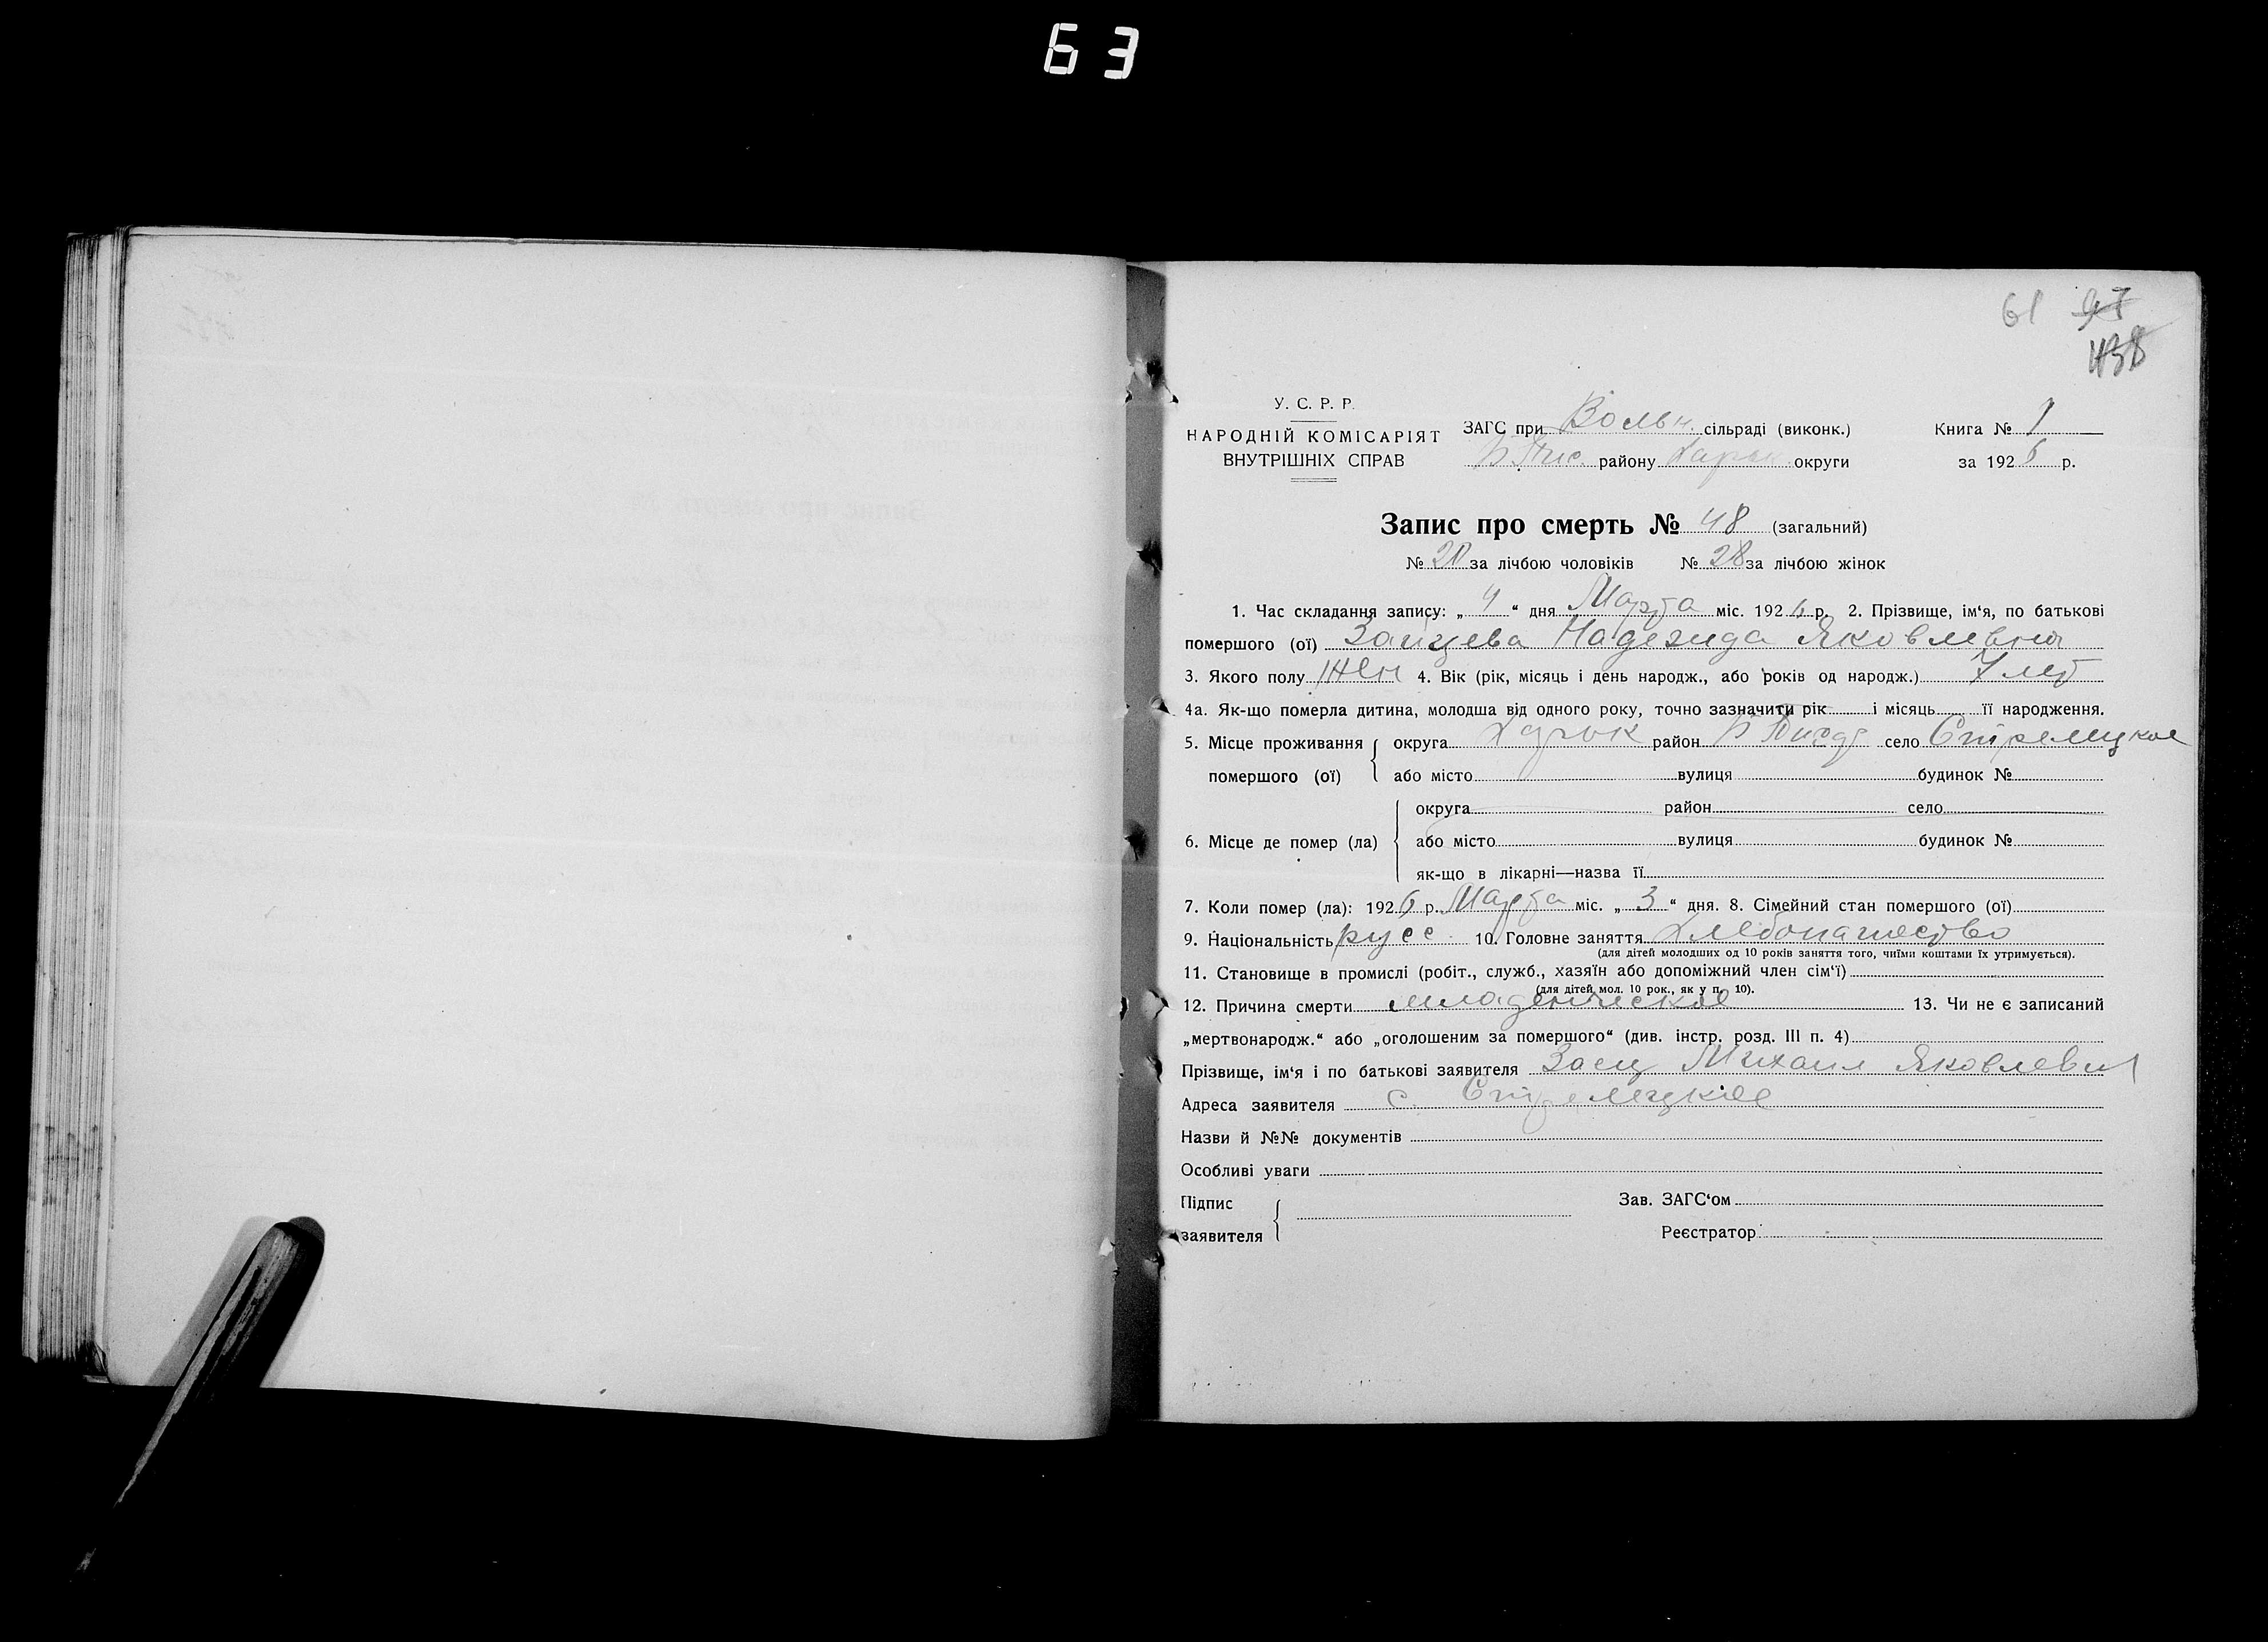 63
61 97
438
У. С. Р. Р.
НАРОДНІЙ КОМІСАРІЯТ
ВНУТРІШНІХ СПРАВ
ЗАГС при Вольн. сільраді (виконк.)
району Харьк округи
Книга № 1
за 1926 р.
Запис про смерть № 48 (загальний)
№ 20 за лічбою чоловіків № 28 за лічбою жінок
1. Час складання запису: „ 4 “ дня Марта міс. 1926 р. 2. Прізвище, ім‘я, по батькові
помершого (ої) Зайцева Надежда Яковлевна
3. Якого полу жен 4. Вік (рік, місяць і день народж., або років од народж.) 7 лет
4а. Як-що померла дитина, молодша від одного року, точно зазначити рік і місяць її народження.
5. Місце проживання помершого (ої) округа Харьк район село Стрелецкое
або місто вулиця будинок №
6. Місце де помер (ла) округа район село
або місто вулиця будинок №
як-що в лікарні—назва її
7. Коли помер (ла): 1926 р. Марта міс. „ 3 “ дня. 8. Сімейний стан помершого (ої)
9. Національність русс 10. Головне заняття Хлебопашество
(для дітей молодших од 10 років заняття того, чиїми коштами їх утримується).
11. Становище в промислі (робіт., служб., хазяїн або допоміжний член сім‘ї)
(для дітей мол. 10 рок., як у п. 10).
12. Причина смерти младенческое 13. Чи не є записаний
„мертвонародж.“ або „оголошеним за помершого“ (див. інстр. розд. III п. 4)
Прізвище, ім‘я і по батькові заявителя Заец Михаил Яковлевич
Адреса заявителя с. Стрелецкое
Назви й №№ документів
Особливі уваги
Підпис
заявителя
Зав. ЗАГС‘ом
Реєстратор